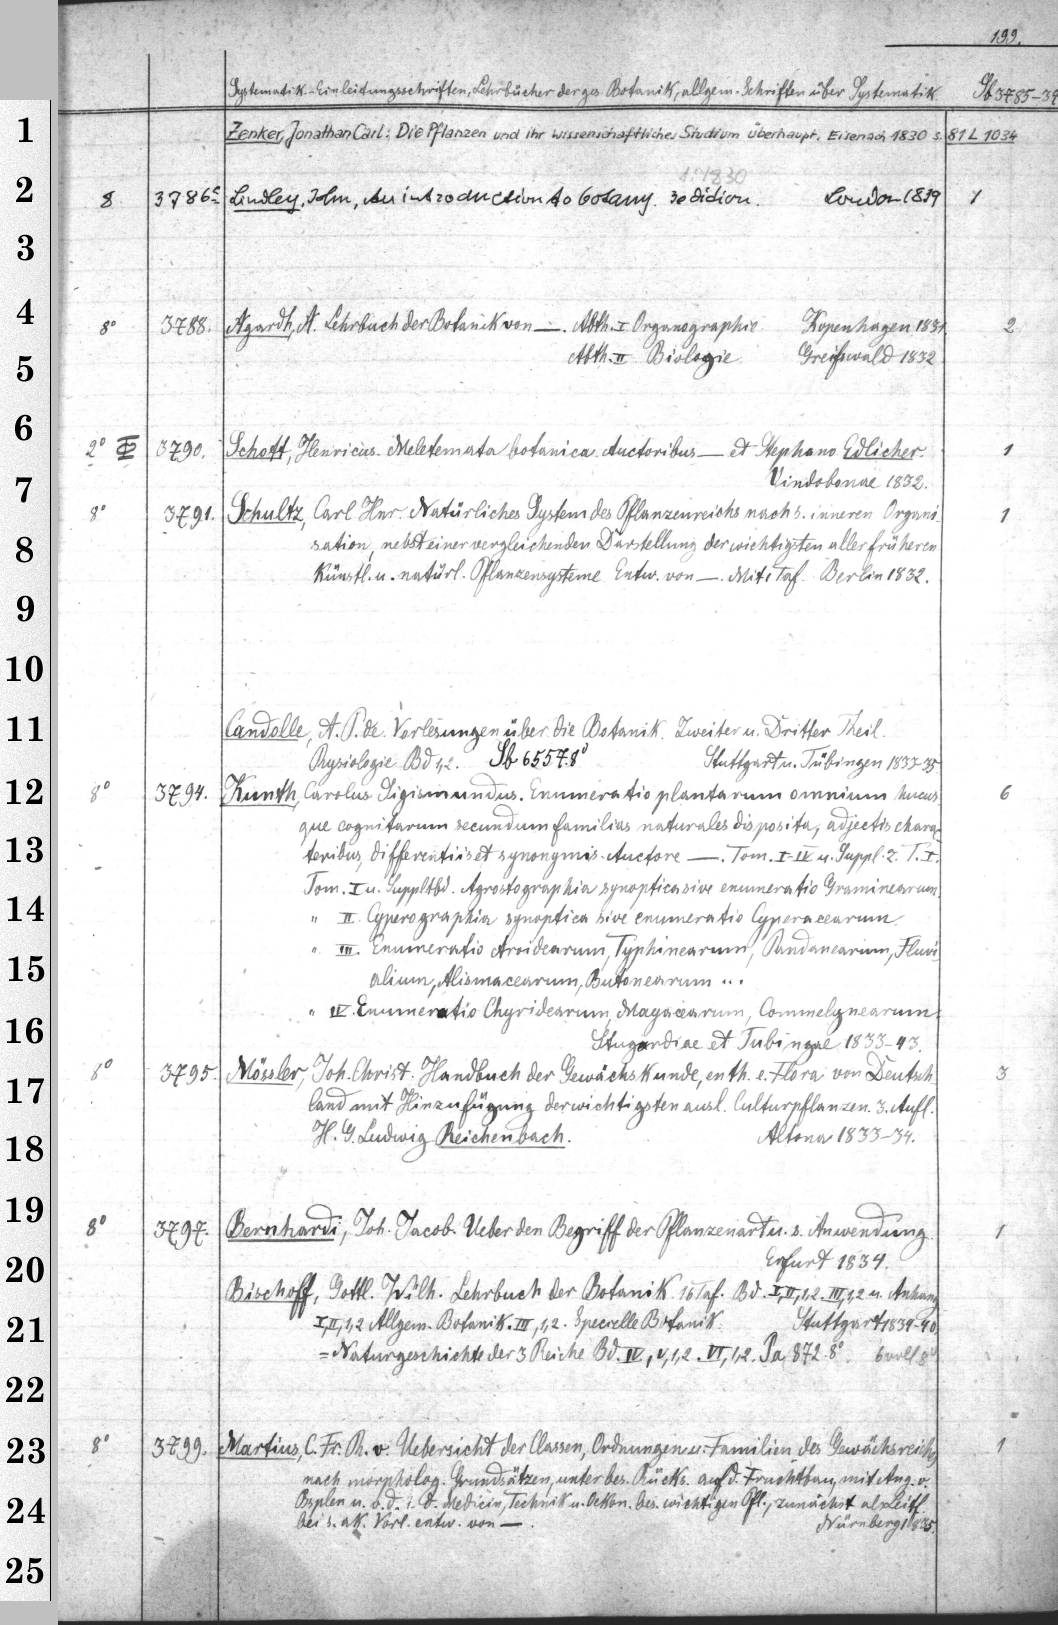 199.
Systematik-Einleitungsschriften, Lehrbücher der ges. Botanik, allgem. Schriften über Systematik Sb 3785-39
1 Zenker, Jonathan Carl: Die Pflanzen und ihr wissenschaftliches Studium überhaupt. Eisenach 1830 s. 81 L 1034
1:1830
2 8 3786 Lindley, John, An introduction to botany 3 edition. London 1839 1
3
4 8° 3788. Agardh, A. Lehrbuch der Botanik von —. Abth. I Organographie Kopenhagen 1831. 2
5 Abth. II Biologie Greifswald 1832
6 2° 3790. Schott, Henricus. Meletemata botanica. Auctoribus — et Stephano Edlicher. 1
7 Vindobonae 1832.
8° 3791. Schultz, Carl Hnr. Natürliches System des Pflanzenreichs nach s. inneren Organi 1
8 sation, nebst einer vergleichenden Darstellung der wichtigsten aller früheren
künstl. u. natürl. Pflanzensysteme Entw. von —. Mit 1 Taf. Berlin 1832.
9
10
11 Candolle, A. P. de. Vorlesungen über die Botanik. Zweiter u. Dritter Theil.
Physiologie Bd 1,2. Sb 6557.8° Stuttgart u. Tübingen 1833-35
12 8° 3794. Kunth, Carolus Sigismundus. Enumeratio plantarum omnium hucus 6
que cognitarum secundum familias naturales disposita, adjectis charac
13 teribus, differentiis et synonymis. Auctore —. Tom. I-IV u. Suppl. z. T. I.
Tom. I u. Supplbd. Agrostographia synoptica sive enumeratio Graminearum.
14 " II. Cyperographia synoptica sive enumeratio Cyperacearum
15 " III. Enumeratio Aroidearum, Typhinearum, Pandanearum, Fluvi
alium, Alismacearum, Butonearum ...
16 " IV. Enumeratio Chyridearum, Mayacearum, Commelynearum.
Stuggardiae et Tubingae 1833-43.
17 8° 3795. Mössler, Joh. Christ. Handbuch der Gewächskunde, enth. e. Flora von Deutsch 3
land mit Hinzufügung der wichtigsten ausl. Culturpflanzen. 3. Aufl.
18 H. G. Ludwig Reichenbach. Altona 1833-34.
19 8° 3797. Bernhardi, Joh. Jacob. Ueber den Begriff der Pflanzenart u. s. Anwendung. 1
20 Erfurt 1834.
Bischoff, Gottl. Wilh. Lehrbuch der Botanik. 16 Taf. Bd. I, II,1,2. III,1,2 u. Anhang
21 I, II,1,2 Allgem. Botanik. III,1,2. Specielle Botanik. Stuttgart 1834-40
= Naturgeschichte der 3 Reiche Bd. IV, V,1,2. VI,1,2. Pa 872.8°. 6 voll 8°
22
23 8° 3799. Martius, C. Fr. Ph. v. Uebersicht der Classen, Ordnungen u. Familien des Gewächsreichs 1
nach morpholog. Grundsätzen, unter bes. Rücks. auf d. Fruchtbau, mit Ang. v.
24 Bsplen u. b. d. i. d. Medicin, Technik u. Oekon. bes. wichtigen Pfl., zunächst als Leitf.
bei s. ak. Vorl. entw. von —. Nürnberg 1835.
25